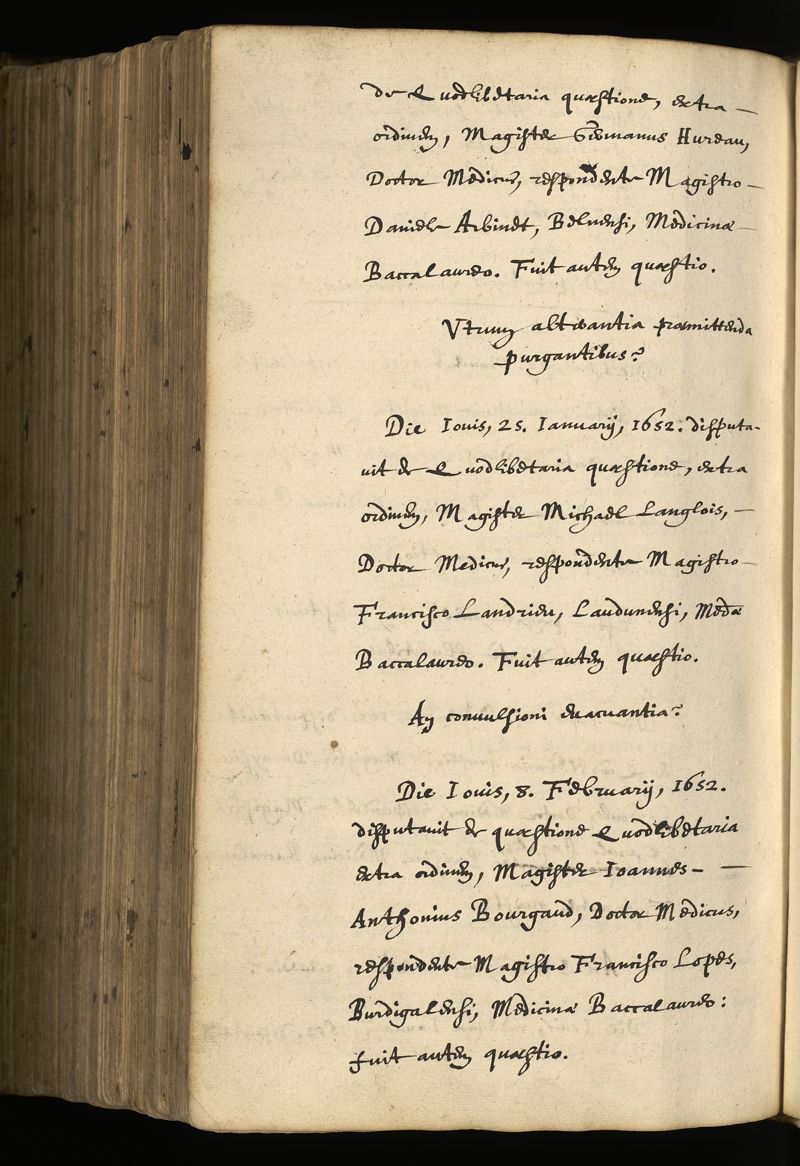 de Quodlibetaria quæstione, extra —
ordinem, Magister Germanus Hureau,
Doctor Medicus, respondente Magistro —
Daniele Arbinet, Beluensi, Medicinæ —
Baccalaureo. Fuit autem quæstio.
Vtrum alterantia præmittenda
purgantibus?
Die Iouis, 25. Ianuarij, 1652. disputa-
uit de Quodlibetaria quæstione, extra
ordinem, Magister Michael Langlois, —
Doctor Medicus, respondente Magistro —
Francisco Landrieu, Laudunensi, Medæ
Baccalaureo. Fuit autem quæstio.
An conuulsioni euacuantia?
Die Iouis, 8. February, 1652.
disputauit de quæstione Quodlibetaria
extra ordinem, Magister Ioannes - —
Anthonius Bourgaud, Doctor Medicus,
respondente Magistro Francisco Lopes,
Burdigalensi, Medicinæ Baccalaureo:
fuit autem quæstio.